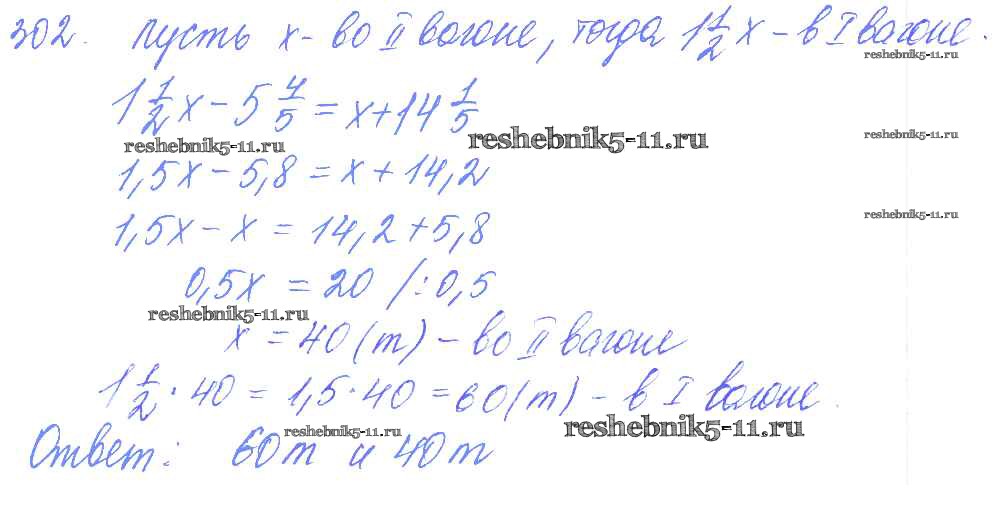 302. Пусть x - во II вагоне, тогда 1 1/2 x - в I вагоне.
reshebnik5-11.ru
1 1/2 x - 5 4/5 = x + 14 1/5
reshebnik5-11.ru reshebnik5-11.ru reshebnik5-11.ru
1,5x - 5,8 = x + 14,2
1,5x - x = 14,2 + 5,8
reshebnik5-11.ru
0,5x = 20 /:0,5
reshebnik5-11.ru
x = 40 (т) - во II вагоне
1 1/2 · 40 = 1,5 · 40 = 60 (т) - в I вагоне.
reshebnik5-11.ru reshebnik5-11.ru
Ответ: 60т и 40т